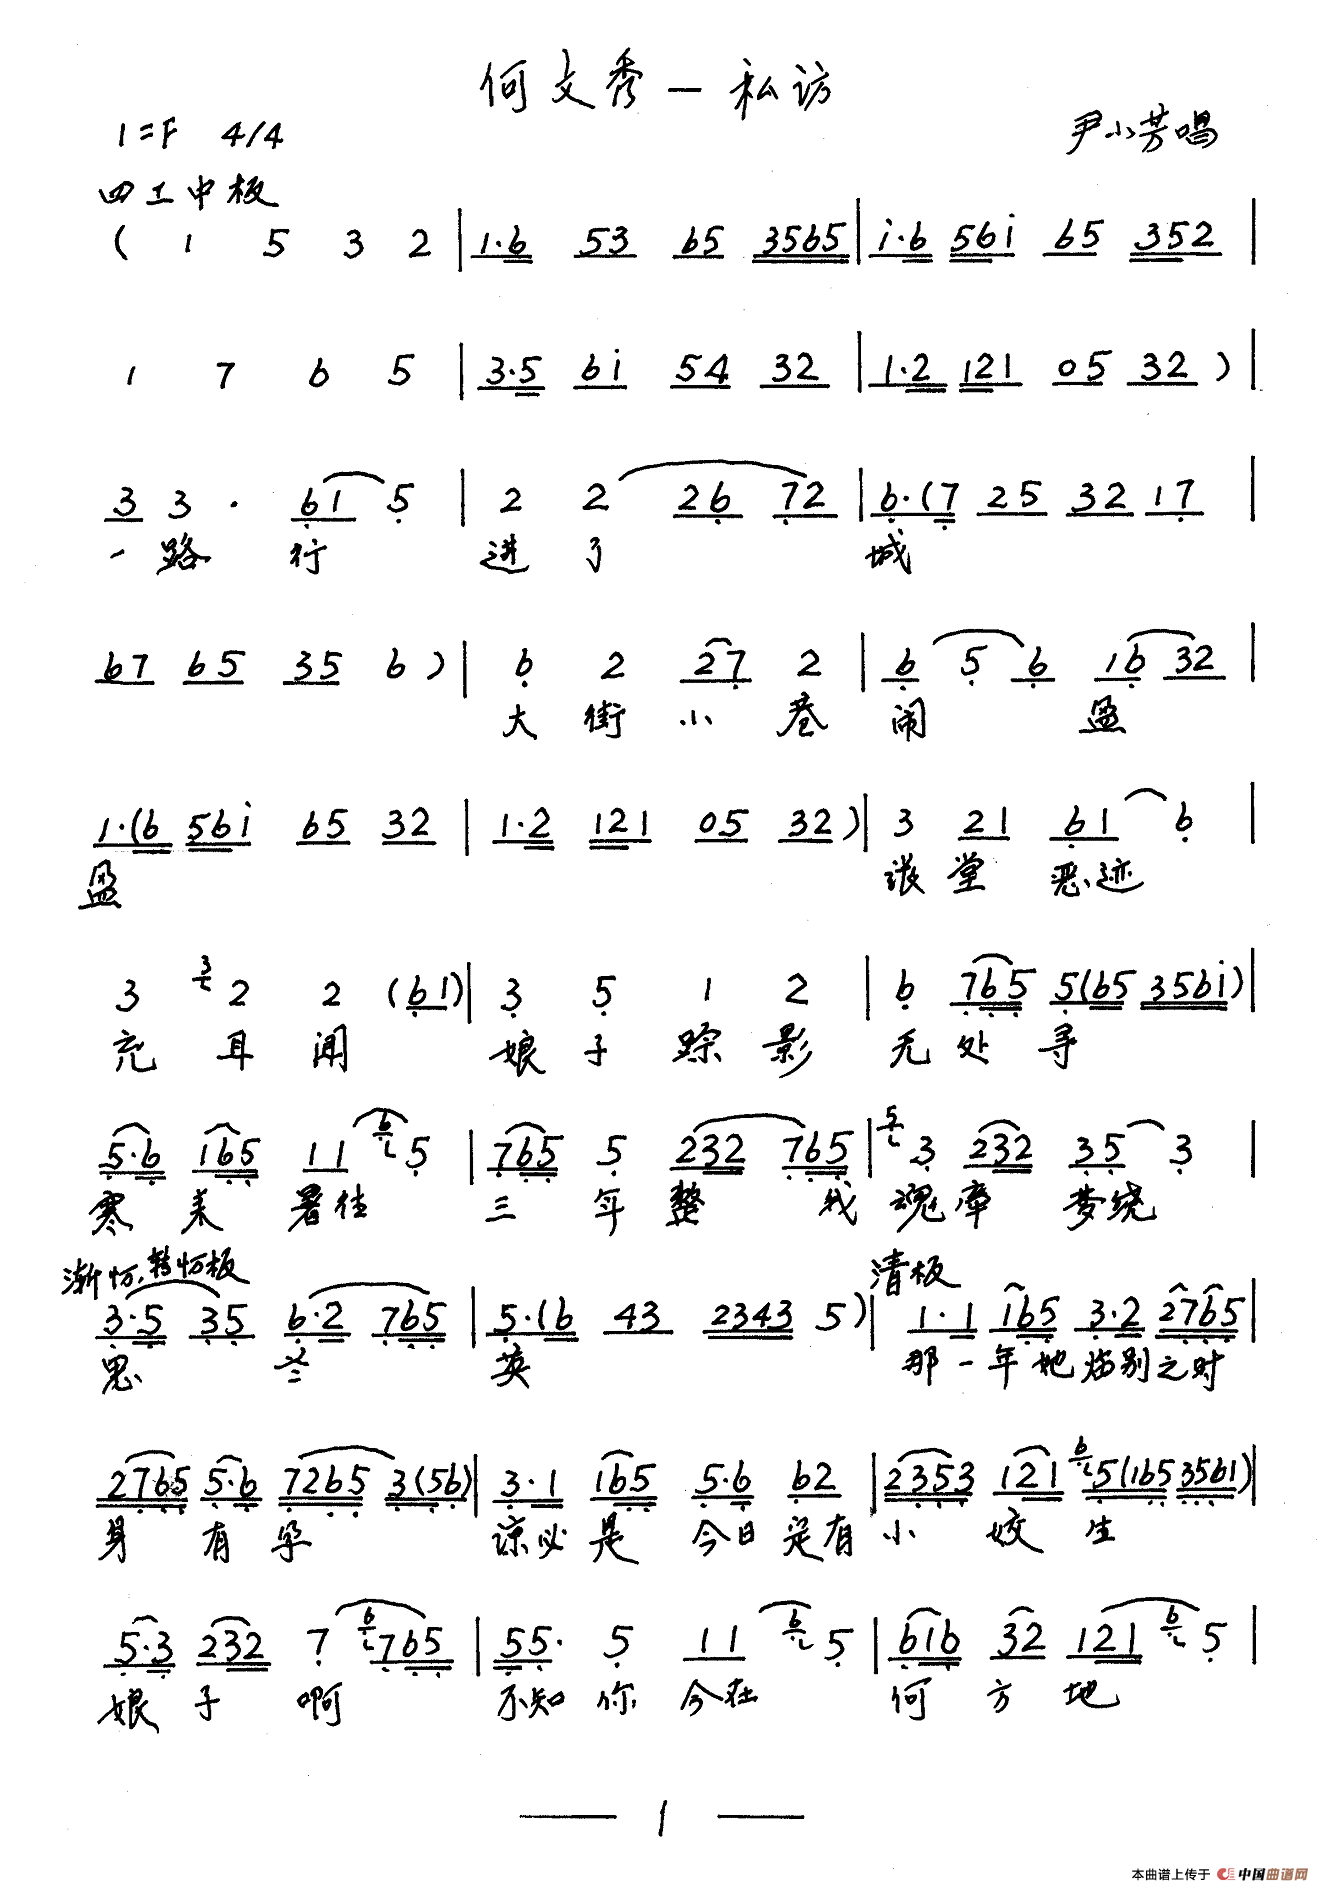 何文秀—私访
1=F 4/4
尹小芳唱
四工中板
( 1 5 3 2 | 1·6 53 65 3565 | i·6 56i 65 352 |
1 7 6 5 | 3·5 6i 54 32 | 1·2 121 05 32 ) |
3 3 · 61 5 | 2 2 26 72 | 6·(7 25 32 17 |
一路 行 进 了 城
67 65 35 6 ) | 6 2 27 2 | 6 5 6 16 32 |
大 街 小 巷 闹 盈
1·(6 56i 65 32 | 1·2 121 05 32 ) | 3 21 61 6 |
盈 张堂 恶迹
3 3 2 2 (61) | 3 5 1 2 | 6 765 5(65 356i) |
充 耳 闻 娘 子 踪 影 无 处 寻
5·6 165 11 6 5 | 765 5 232 765 | 5 3 232 35 3 |
寒 来 暑往 三 年 整 我 魂牵 梦绕
渐慢,转慢板
清板
3·5 35 6·2 765 | 5·(6 43 2343 5 ) | 1·1 165 3·2 2765 |
思 兰 英 那一年她临别之时
2765 5·6 7265 3(56) | 3·1 165 5·6 62 | 2353 121 6 5(165 3561) |
身 有 孕 谅必是 今日定有 小 姣 生
5·3 232 7 6 765 | 55· 5 11 6 5 | 616 32 121 6 5 |
娘 子 啊 不知 你 今在 何 方 地
— 1 —
本曲谱上传于 中国曲谱网